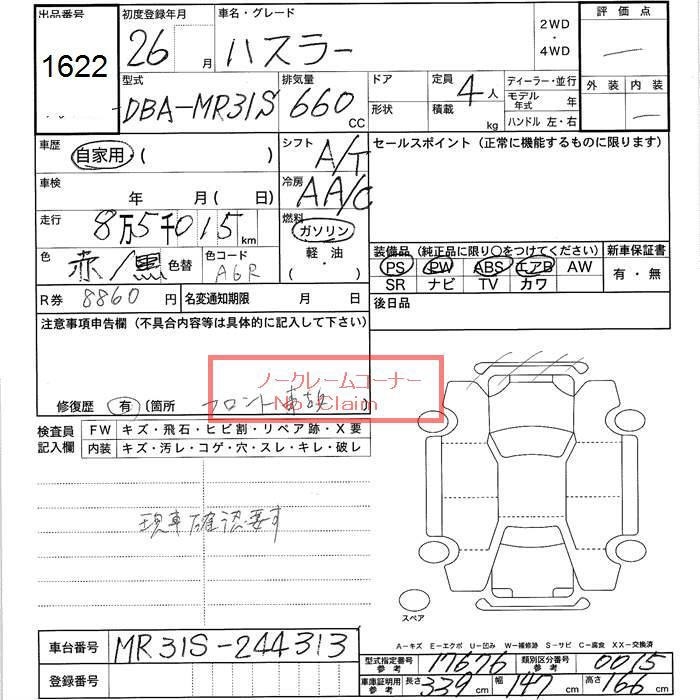 出品番号 初度登録年月 車名・グレード 2WD ・ 4WD 評価点
1622 26 月 ハスラー
外装 内装
型式 排気量 ドア 定員 ディーラー・並行
DBA-MR31S 660 CC 形状 積載 4 人 kg モデル年式 年
ハンドル 左・右
車歴 自家用・( ) シフト A/T セールスポイント (正常に機能するものに限ります)
車検 年 月( 日) 冷房 AA/C
走行 8万5千015km 燃料 ガソリン・軽油・( )
色 赤/黒 色替 色コード A6R
装備品 (純正品に限り○をつけてください) 新車保証書
PS PW ABS エアB AW 有・無
SR ナビ TV カワ
R券 8860 円 名変通知期限 月 日 後日品
注意事項申告欄 (不具合内容等は具体的に記入して下さい)
ノークレームコーナー
No Claim
修復歴 有 (箇所 フロント事故 )
検査員記入欄 FW キズ・飛石・ヒビ割・リペア跡・X要
内装 キズ・汚レ・コゲ・穴・スレ・キレ・破レ
現車確認要す
スペア
A-キズ E-エクボ U-凹み W-補修跡 S-サビ C-腐食 XX-交換済
車台番号 MR31S-244313
型式指定番号 参考 17676 類別区分番号 参考 0015
登録番号
車庫証明用 参考 長さ 339 cm 幅 147 cm 高さ 166 cm